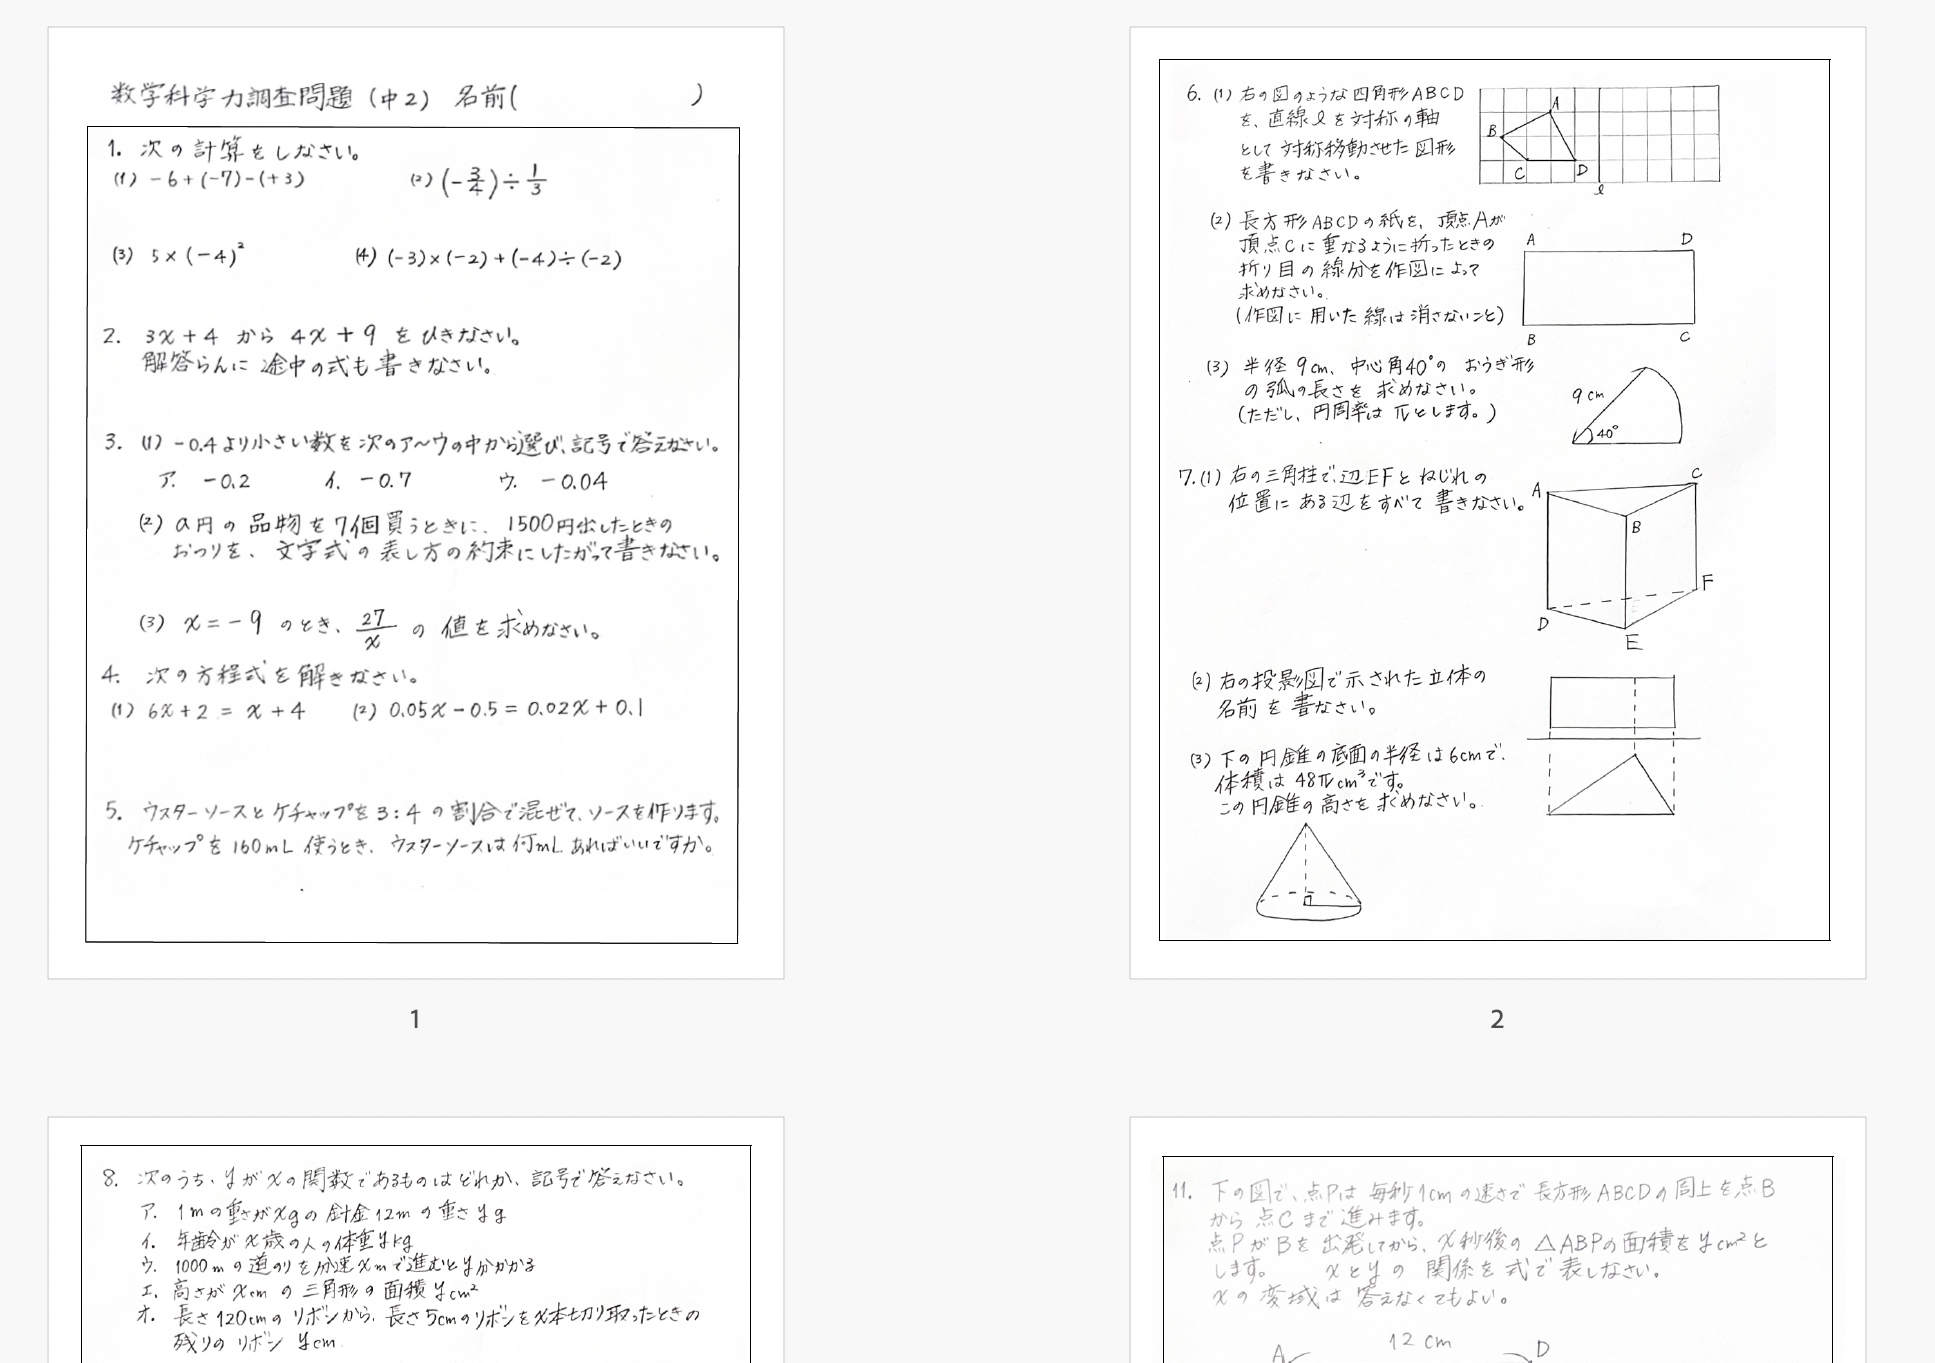 数学科学力調査問題（中2） 名前（　　　）
1. 次の計算をしなさい。
(1) -6+(-7)-(+3)　(2) (-3/4)÷1/3
(3) 5×(-4)²　(4) (-3)×(-2)+(-4)÷(-2)
2. 3x+4 から 4x+9 をひきなさい。
解答らんに 途中の式も書きなさい。
3. (1) -0.4より小さい数を次のア〜ウの中から選び、記号で答えなさい。
ア. -0.2　イ. -0.7　ウ. -0.04
(2) a円の品物を7個買うときに、1500円出したときの
おつりを、文字式の表し方の約束にしたがって書きなさい。
(3) x=-9 のとき、27/x の 値を求めなさい。
4. 次の方程式を解きなさい。
(1) 6x+2 = x+4　(2) 0.05x-0.5=0.02x+0.1
5. ウスターソースとケチャップを3:4の割合で混ぜて、ソースを作ります。
ケチャップを160mL使うとき、ウスターソースは何mLあればいいですか。
1
6. (1) 右の図のような四角形ABCD
を、直線ℓを対称の軸
として対称移動させた図形
を書きなさい。
A
B
C
D
ℓ
(2) 長方形ABCDの紙を、頂点Aが
頂点Cに重なるように折ったときの
折り目の線分を作図によって
求めなさい。
(作図に用いた線は消さないこと)
A D
B C
(3) 半径9cm、中心角40°の おうぎ形
の弧の長さを 求めなさい。
(ただし、円周率はπとします。)
9cm
40°
7. (1) 右の三角柱で、辺EFとねじれの
位置にある辺をすべて書きなさい。
A
C
B
F
D
E
(2) 右の投影図で示された立体の
名前を書なさい。
(3) 下の円錐の底面の半径は6cmで、
体積は48πcm³です。
この円錐の高さを求めなさい。
2
8. 次のうち、yがxの関数であるものはどれか、記号で答えなさい。
ア. 1mの重さがxgの針金12mの重さyg
イ. 年齢がx歳の人の体重ykg
ウ. 1000mの道のりを分速xmで進むとy分かかる
エ. 高さがxcmの三角形の面積ycm²
オ. 長さ120cmのリボンから、長さ5cmのリボンをx本切り取ったときの
残りのリボンycm
11. 下の図で、点Pは毎秒1cmの速さで長方形ABCDの周上を点B
から点Cまで進みます。
点PがBを出発してから、x秒後の△ABPの面積をycm²と
します。　xとyの関係を式で表しなさい。
xの変域は答えなくてもよい。
12cm
A D